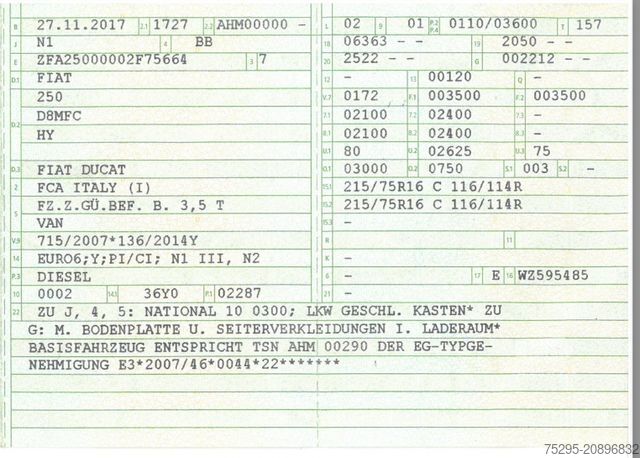 B 27.11.2017 2.1 1727 2.2 AHM00000 - L 02 9 01 P.2 P.4 0110/03600 T 157
J N1 4 BB 18 06363 - - 19 2050 - -
E ZFA25000002F75664 3 7 20 2522 - - G 002212 - -
D.1 FIAT 12 - 13 00120 Q -
250 V.7 0172 F.1 003500 F.2 003500
D.2 D8MFC 7.1 02100 7.2 02400 7.3 -
HY 8.1 02100 8.2 02400 8.3 -
U.1 80 U.2 02625 U.3 75
D.3 FIAT DUCAT O.1 03000 O.2 0750 S.1 003 S.2 -
2 FCA ITALY (I) 15.1 215/75R16 C 116/114R
5 FZ.Z.GÜ.BEF. B. 3,5 T 15.2 215/75R16 C 116/114R
VAN 15.3 -
V.9 715/2007*136/2014Y R 11
14 EURO6;Y;PI/CI; N1 III, N2 K -
P.3 DIESEL 6 - 17 E 16 WZ595485
10 0002 14.1 36Y0 P.1 02287 21 -
22 ZU J, 4, 5: NATIONAL 10 0300; LKW GESCHL. KASTEN* ZU
G: M. BODENPLATTE U. SEITERVERKLEIDUNGEN I. LADERAUM*
BASISFAHRZEUG ENTSPRICHT TSN AHM 00290 DER EG-TYPGE-
NEHMIGUNG E3*2007/46*0044*22*******
75295-20896832